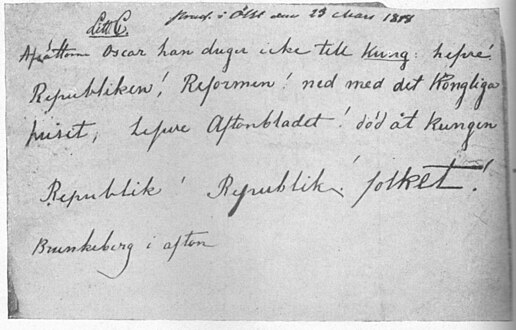 Litt. C.
den 23 Mars 1848
Afsättom Oscar han duger icke till Kung: lefve!
Republiken! Reformen! ned med det Kongliga
huset, lefve Aftonbladet! död åt kungen
Republik! Republik! folket!
Brunkeberg i afton